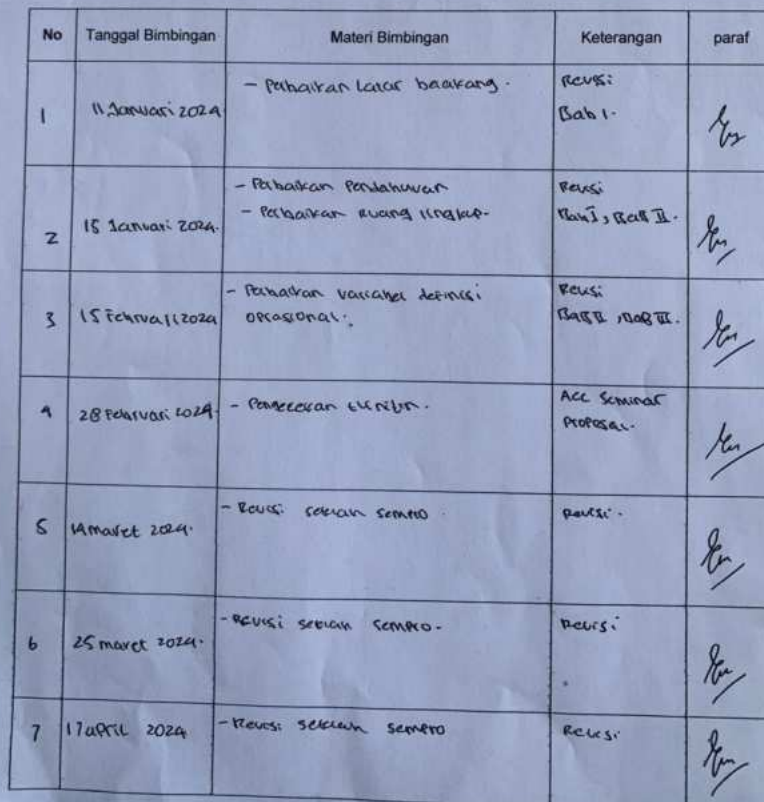 No Tanggal Bimbingan Materi Bimbingan Keterangan paraf
1 11 Januari 2024 - Perbaikan Latar beakang. Revisi
Bab 1.
2 15 Januari 2024. - Perbaikan Pendahuluan Revisi
- Perbaikan Ruang lingkup. Bab I, Bab II.
3 15 Februari 2024 - Perbaikan variabel definisi Revisi
oprasional. Bab II, Bab III.
4 28 Februari 2024. - Pengecekan turnitin. Acc Seminar
Proposal.
5 14 maret 2024. - Revisi setelah sempro. Revisi.
6 25 maret 2024. - Revisi setelah sempro. Revisi
7 17 april 2024 - Revisi setelah sempro Revisi